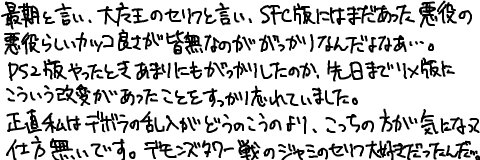 最期と言い、大魔王のセリフと言い、SFC版にはまだあった悪役の
悪役らしいカッコ良さが皆無なのががっかりなんだよなあ…。
PS2版やったときあまりにもがっかりしたのか、先日までリメイク版に
こういう改変があったことをすっかり忘れていました。
正直私はデボラの乱入がどうのこうのより、こっちの方が気になって
仕方無いです。デモンズタワー戦のジャミのセリフ大好きだったんだ…